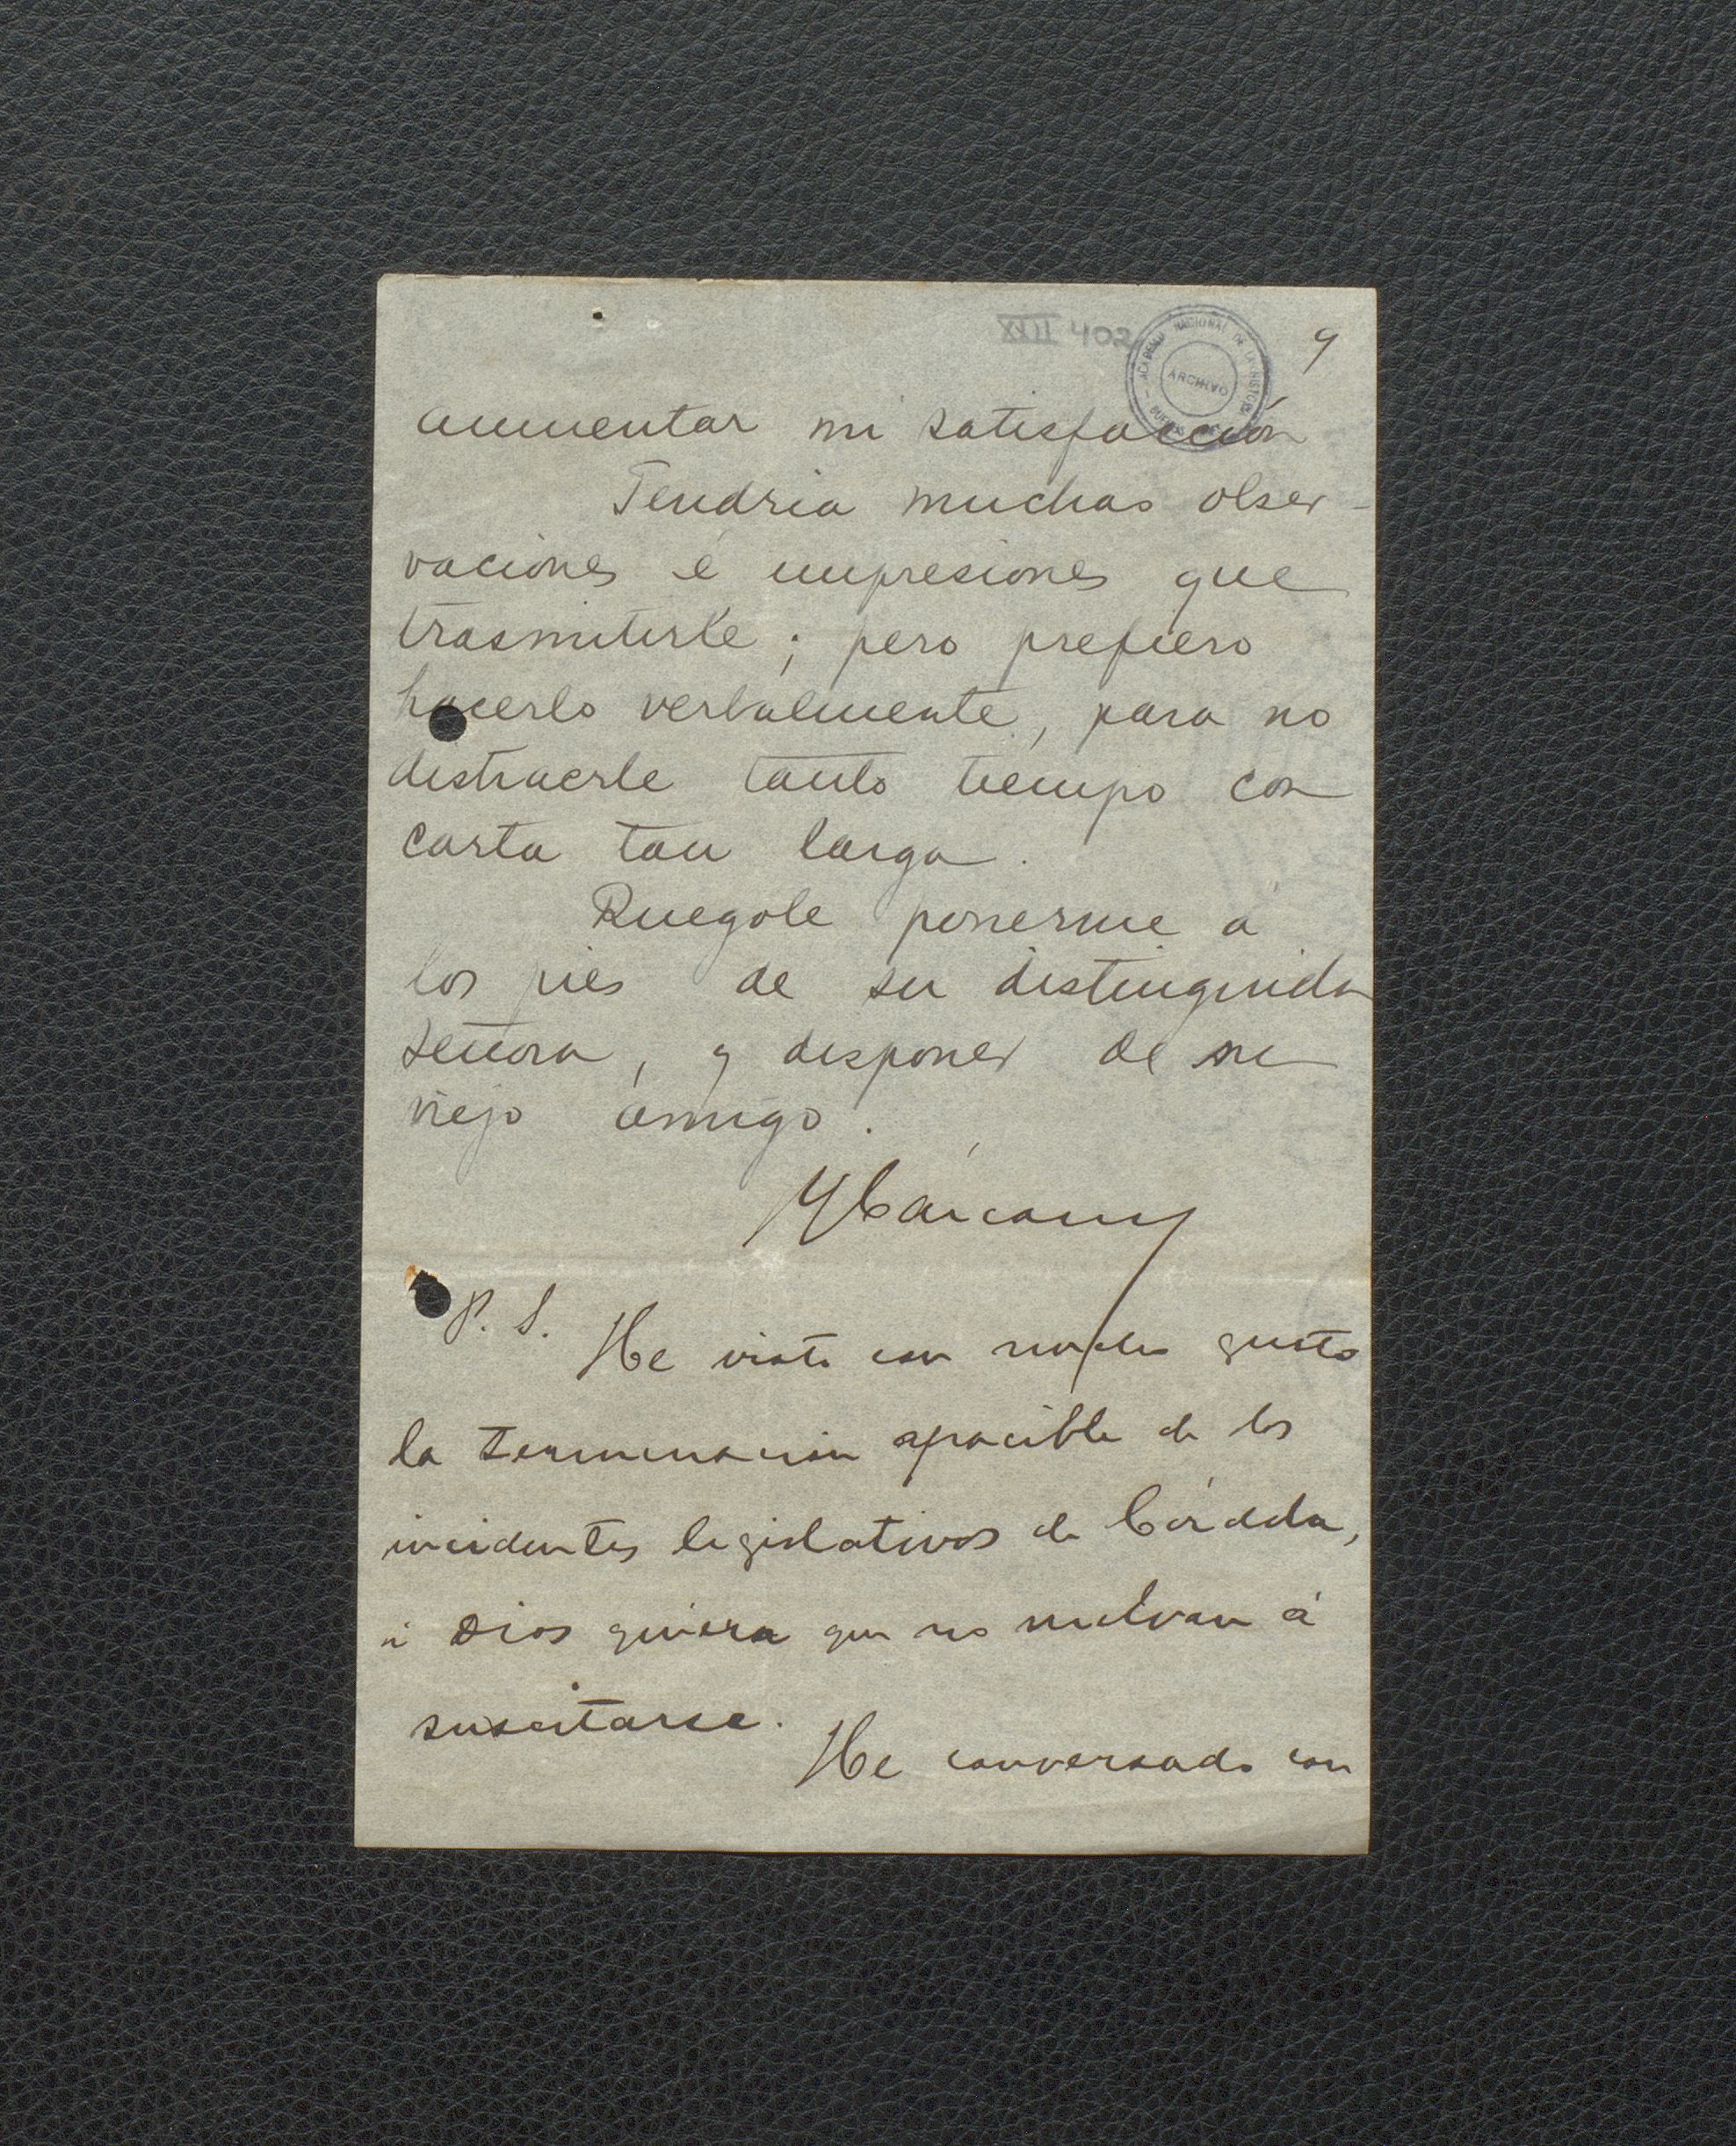 XXII 402
9
ACADEMIA NACIONAL DE LA HISTORIA
ARCHIVO
aumentar mi satisfacción
Tendria muchas obser-
vaciones é impresiones que
trasmitirle; pero prefiero
hacerlo verbalmente, para no
distraerle tanto tiempo con
carta tan larga.
Ruegole ponerme á
los pies de su distinguida
señora, y disponer de su
viejo amigo.
P. S. He visto con mucho gusto
la terminacion apacible de los
incidentes legislativos de Córdoba,
i Dios quiera que no vuelvan á
suscitarse.
He conversado con